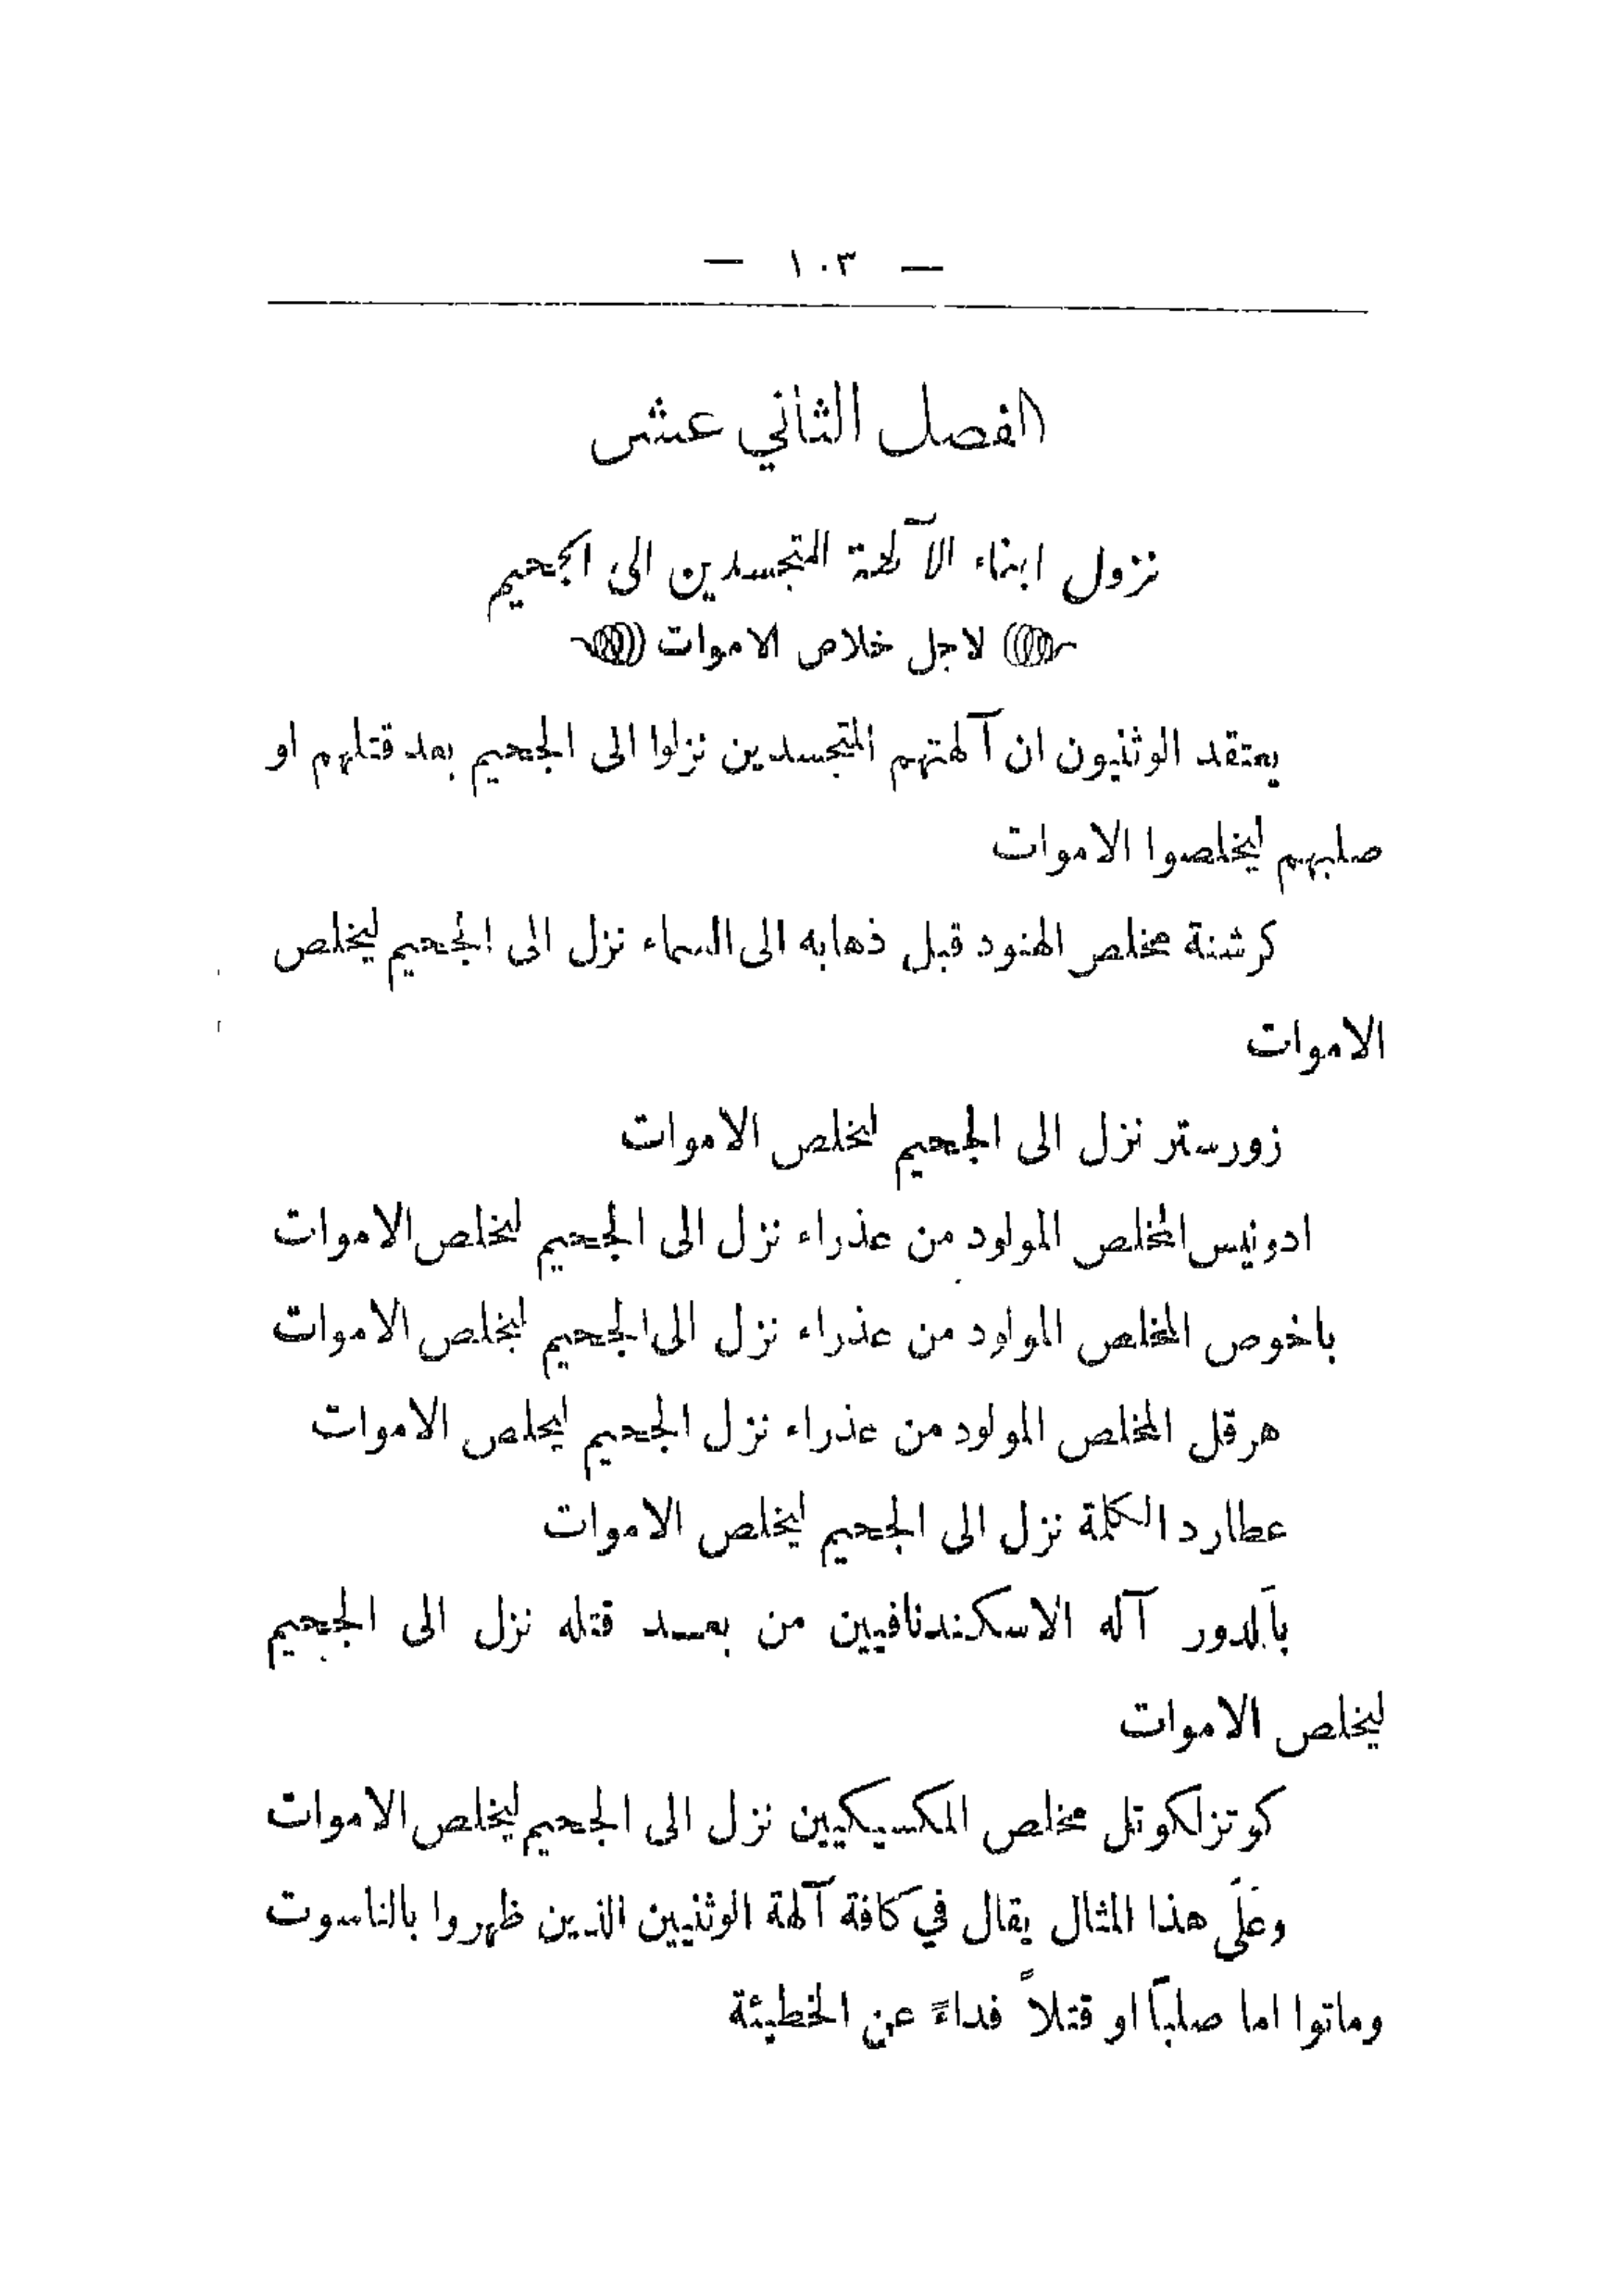 — ١٠٣ —
الفصل الثاني عشر
نزول ابناء الآلهة المتجسدين الى الجحيم
لاجل خلاص الاموات
يعتقد الوثنيون ان آلهتهم المتجسدين نزلوا الى الجحيم بعد قتلهم او
صلبهم ليخلصوا الاموات
كرشنة مخلص الهنود قبل ذهابه الى السماء نزل الى الجحيم ليخلص
الاموات
زورستر نزل الى الجحيم ليخلص الاموات
ادونيس المخلص المولود من عذراء نزل الى الجحيم ليخلص الاموات
باخوص المخلص المولود من عذراء نزل الى الجحيم ليخلص الاموات
هرقل المخلص المولود من عذراء نزل الجحيم ليخلص الاموات
عطارد الكلمة نزل الى الجحيم ليخلص الاموات
بَالدور آله الاسكندنافيين من بعد قتله نزل الى الجحيم
ليخلص الاموات
كوتزلكوتل مخلص المكسيكيين نزل الى الجحيم ليخلص الاموات
وعَلَى هذا المثال يقال في كافة آلهة الوثنيين الذين ظهروا بالناسوت
وماتوا اما صلباً او قتلاً فداءً عن الخطيئة